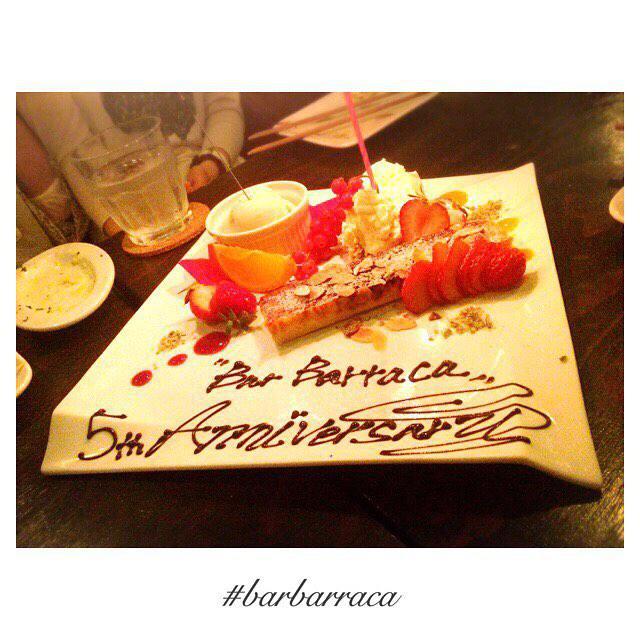 "Bar Barraca"
5th Anniversary
#barbarraca